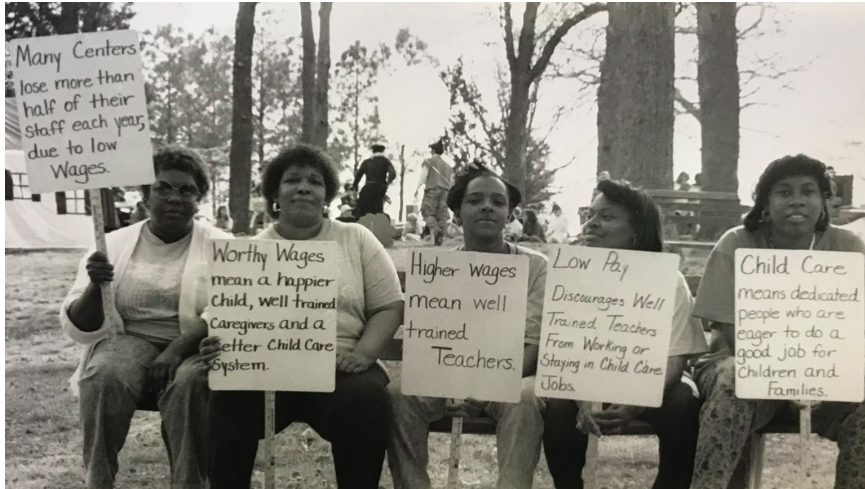 Many Centers
lose more than
half of their
staff each year,
due to low
Wages.
Worthy Wages
mean a happier
Child, well trained
Caregivers and a
Better Child Care
System.
Higher Wages
mean well
trained
Teachers.
Low Pay
Discourages Well
Trained Teachers
From Working or
Staying in Child Care
Jobs.
Child Care
means dedicated
people who are
eager to do a
good job for
Children and
Families.